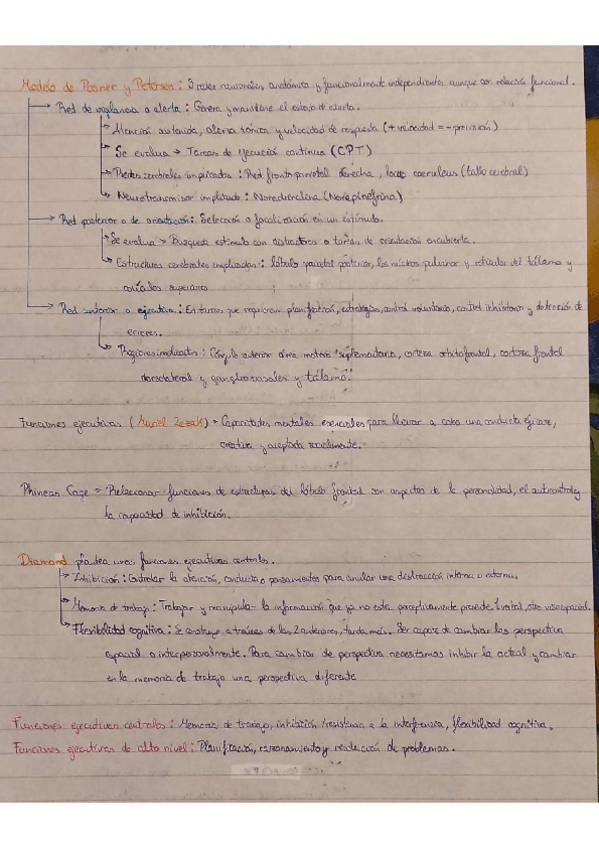 Modelo de Posner y Petersen: 3 redes neuronales, anatómica y funcionalmente independientes aunque con relación funcional.
Red de vigilancia o alerta: Genera y mantiene el estado de alerta.
Atención sostenida, alerta tónica y velocidad de respuesta (+ velocidad = - precisión)
Se evalua → Tareas de ejecución continua (CPT)
Redes cerebrales implicadas: Red frontoparietal derecha, locus coeruleus (tallo cerebral)
Neurotransmisor implicado: Noradrenalina (Norepinefrina)
Red posterior o de orientación: Selección o focalización en un estímulo.
Se evalua → Busqueda estímulo con distractores o tareas de orientación encubierta.
Estructuras cerebrales implicadas: lóbulo parietal posterior, los núcleos pulvinar y reticular del tálamo y
colículos superiores
Red anterior o ejecutiva: En tareas que requieren planificación, estrategias, control voluntario, control inhibitorio y detección de
errores.
Regiones implicadas: Cíngulo anterior área motora suplementaria, corteza orbitofrontal, corteza frontal
dorsolateral y ganglios basales y tálamo.
Funciones ejecutivas (Muriel Lezak) = Capacidades mentales esenciales para llevar a cabo una conducta eficaz,
creativa y aceptada socialmente.
Phineas Gage = Relacionar funciones de estructuras del lóbulo frontal con aspectos de la personalidad, el autocontrol y
la capacidad de inhibición.
Diamond plantea unas funciones ejecutivas centrales.
Inhibición: Controlar la atención, conducta o pensamientos para anular una distracción interna o externa.
Memoria de trabajo: Trabajar y manipular la información que ya no esta perceptivamente presente. 1 verbal, otro visoespacial.
Flexibilidad cognitiva: Se construye a través de las 2 anteriores, tarda más. Ser capaz de cambiar las perspectiva
espacial o interpersonalmente. Para cambiar de perspectiva necesitamos inhibir la actual y cambiar
en la memoria de trabajo una perspectiva diferente
Funciones ejecutivas centrales: Memoria de trabajo, inhibición/resistencia a la interferencia, flexibilidad cognitiva.
Funciones ejecutivas de alto nivel: Planificación, razonamiento y resolución de problemas.